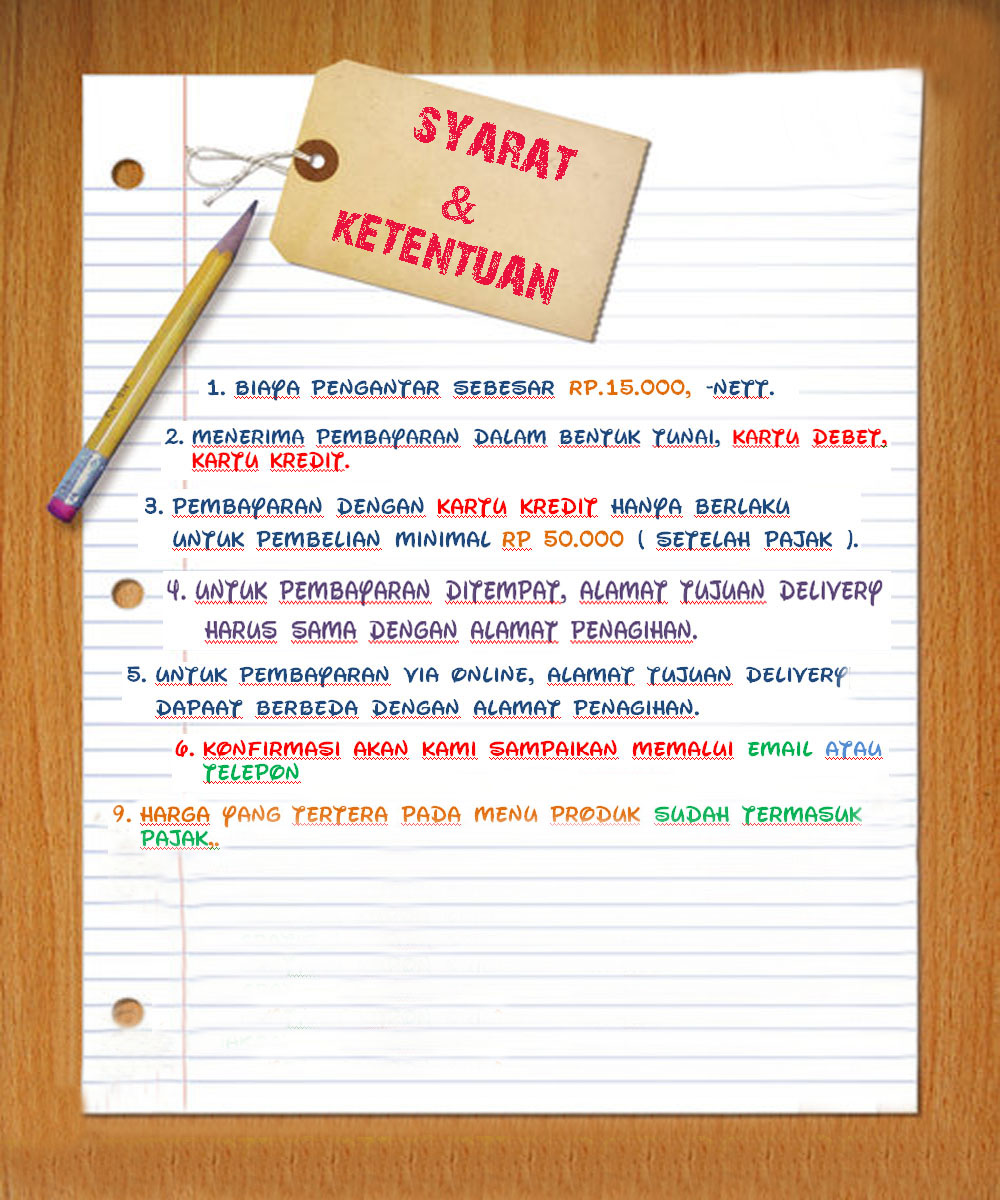 SYARAT
&
KETENTUAN
1. BIAYA PENGANTAR SEBESAR RP.15.000, -NETT.
2. MENERIMA PEMBAYARAN DALAM BENTUK TUNAI, KARTU DEBET,
KARTU KREDIT.
3. PEMBAYARAN DENGAN KARTU KREDIT HANYA BERLAKU
UNTUK PEMBELIAN MINIMAL RP 50.000 ( SETELAH PAJAK ).
4. UNTUK PEMBAYARAN DITEMPAT, ALAMAT TUJUAN DELIVERY
HARUS SAMA DENGAN ALAMAT PENAGIHAN.
5. UNTUK PEMBAYARAN VIA ONLINE, ALAMAT TUJUAN DELIVERY
DAPAAT BERBEDA DENGAN ALAMAT PENAGIHAN.
6. KONFIRMASI AKAN KAMI SAMPAIKAN MEMALUI EMAIL ATAU
TELEPON
9. HARGA YANG TERTERA PADA MENU PRODUK SUDAH TERMASUK
PAJAK,.